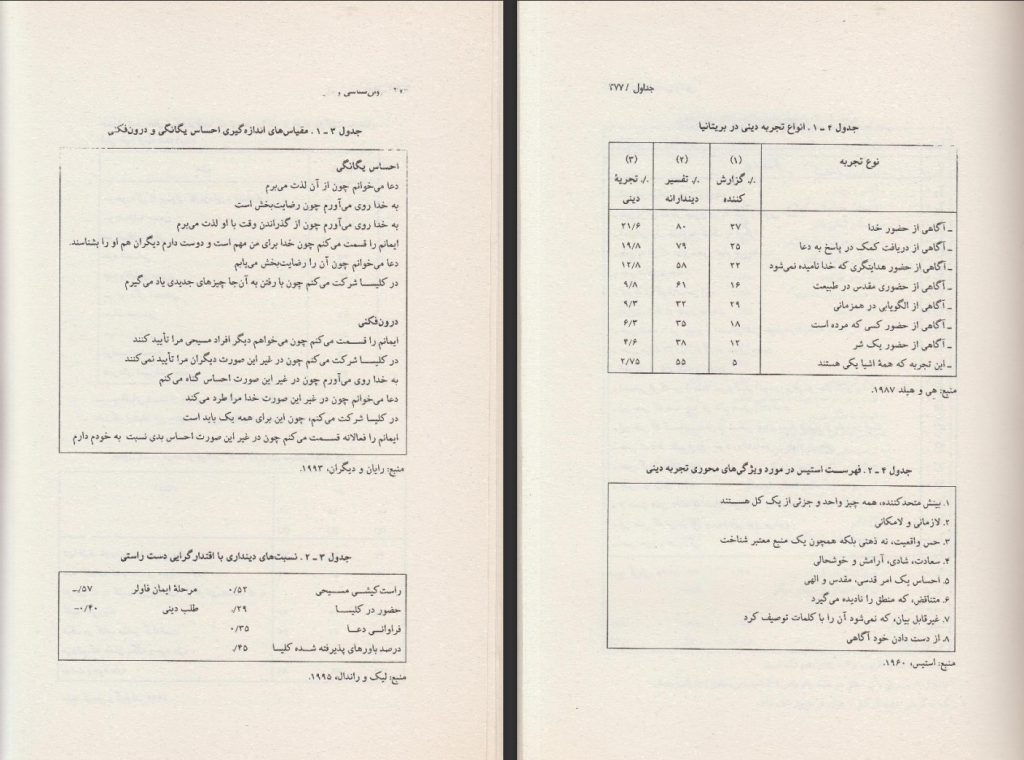 جدول ۳ ـ ۱. مقیاس‌های اندازه‌گیری احساس یگانگی و درون‌فکنی
احساس یگانگی
دعا می‌خوانم چون از آن لذت می‌برم
به خدا روی می‌آورم چون رضایت‌بخش است
به خدا روی می‌آورم چون از گذراندن وقت با او لذت می‌برم
ایمانم را قسمت می‌کنم چون خدا برای من مهم است و دوست دارم دیگران هم او را بشناسند.
دعا می‌خوانم چون آن را رضایت‌بخش می‌یابم
در کلیسا شرکت می‌کنم چون با رفتن به آن‌جا چیزهای جدیدی یاد می‌گیرم
درون‌فکنی
ایمانم را قسمت می‌کنم چون می‌خواهم دیگر افراد مسیحی مرا تأیید کنند
در کلیسا شرکت می‌کنم چون در غیر این صورت دیگران مرا تأیید نمی‌کنند
به خدا روی می‌آورم چون در غیر این صورت احساس گناه می‌کنم
دعا می‌خوانم چون در غیر این صورت خدا مرا طرد می‌کند
در کلیسا شرکت می‌کنم، چون این برای همه یک باید است
ایمانم را فعالانه قسمت می‌کنم چون در غیر این صورت احساس بدی نسبت به خودم دارم
منبع: رایان و دیگران، ۱۹۹۳.
جدول ۳ ـ ۲. نسبت‌های دینداری با اقتدارگرایی دست راستی
راست‌کیشی مسیحی ۰/۵۲ مرحلهٔ ایمان فاولر ‎-/۵۷
حضور در کلیسا ‎/۲۹ طلب دینی ‎-۰/۴۰
فراوانی دعا ۰/۳۵
درصد باورهای پذیرفته شده کلیسا ‎/۴۵
منبع: لیک و راندال، ۱۹۹۵.
جداول / ۳۷۷
جدول ۴ ـ ۱. انواع تجربه دینی در بریتانیا
نوع تجربه (۱) (۲) (۳)
٪ گزارش ٪ تفسیر ٪ تجربهٔ
کننده دیندارانه دینی
ـ آگاهی از حضور خدا ۲۷ ۸۰ ۲۱/۶
ـ آگاهی از دریافت کمک در پاسخ به دعا ۲۵ ۷۹ ۱۹/۸
ـ آگاهی از حضور هدایتگری که خدا نامیده نمی‌شود ۲۲ ۵۸ ۱۲/۸
ـ آگاهی از حضوری مقدس در طبیعت ۱۶ ۶۱ ۹/۸
ـ آگاهی از الگویابی در همزمانی ۲۹ ۳۲ ۹/۳
ـ آگاهی از حضور کسی که مرده است ۱۸ ۳۵ ۶/۳
ـ آگاهی از حضور یک شر ۱۲ ۳۸ ۴/۶
ـ این تجربه که همهٔ اشیا یکی هستند ۵ ۵۵ ۲/۷۵
منبع: هی و هیلد ۱۹۸۷.
جدول ۴ ـ ۲. فهرست استیس در مورد ویژگی‌های محوری تجربه دینی
۱. بینش متحدکننده، همه چیز واحد و جزئی از یک کل هستند
۲. لازمانی و لامکانی
۳. حس واقعیت، نه ذهنی بلکه همچون یک منبع معتبر شناخت
۴. سعادت، شادی، آرامش و خوشحالی
۵. احساس یک امر قدسی، مقدس و الهی
۶. متناقض، که منطق را نادیده می‌گیرد
۷. غیرقابل بیان، که نمی‌شود آن را با کلمات توصیف کرد
۸. از دست دادن خود آگاهی
منبع: استیس، ۱۹۶۰.